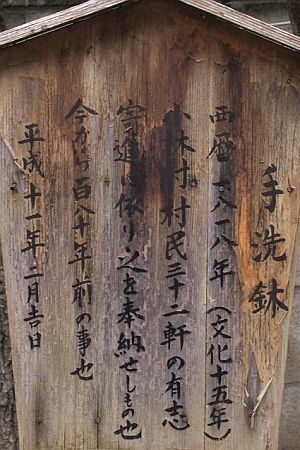 手洗鉢
西暦一八一八年(文化十五年)
小林村村民三十二軒の有志
寄進に依り之を奉納せしもの也
今から百八十年前の事也
平成十一年二月吉日